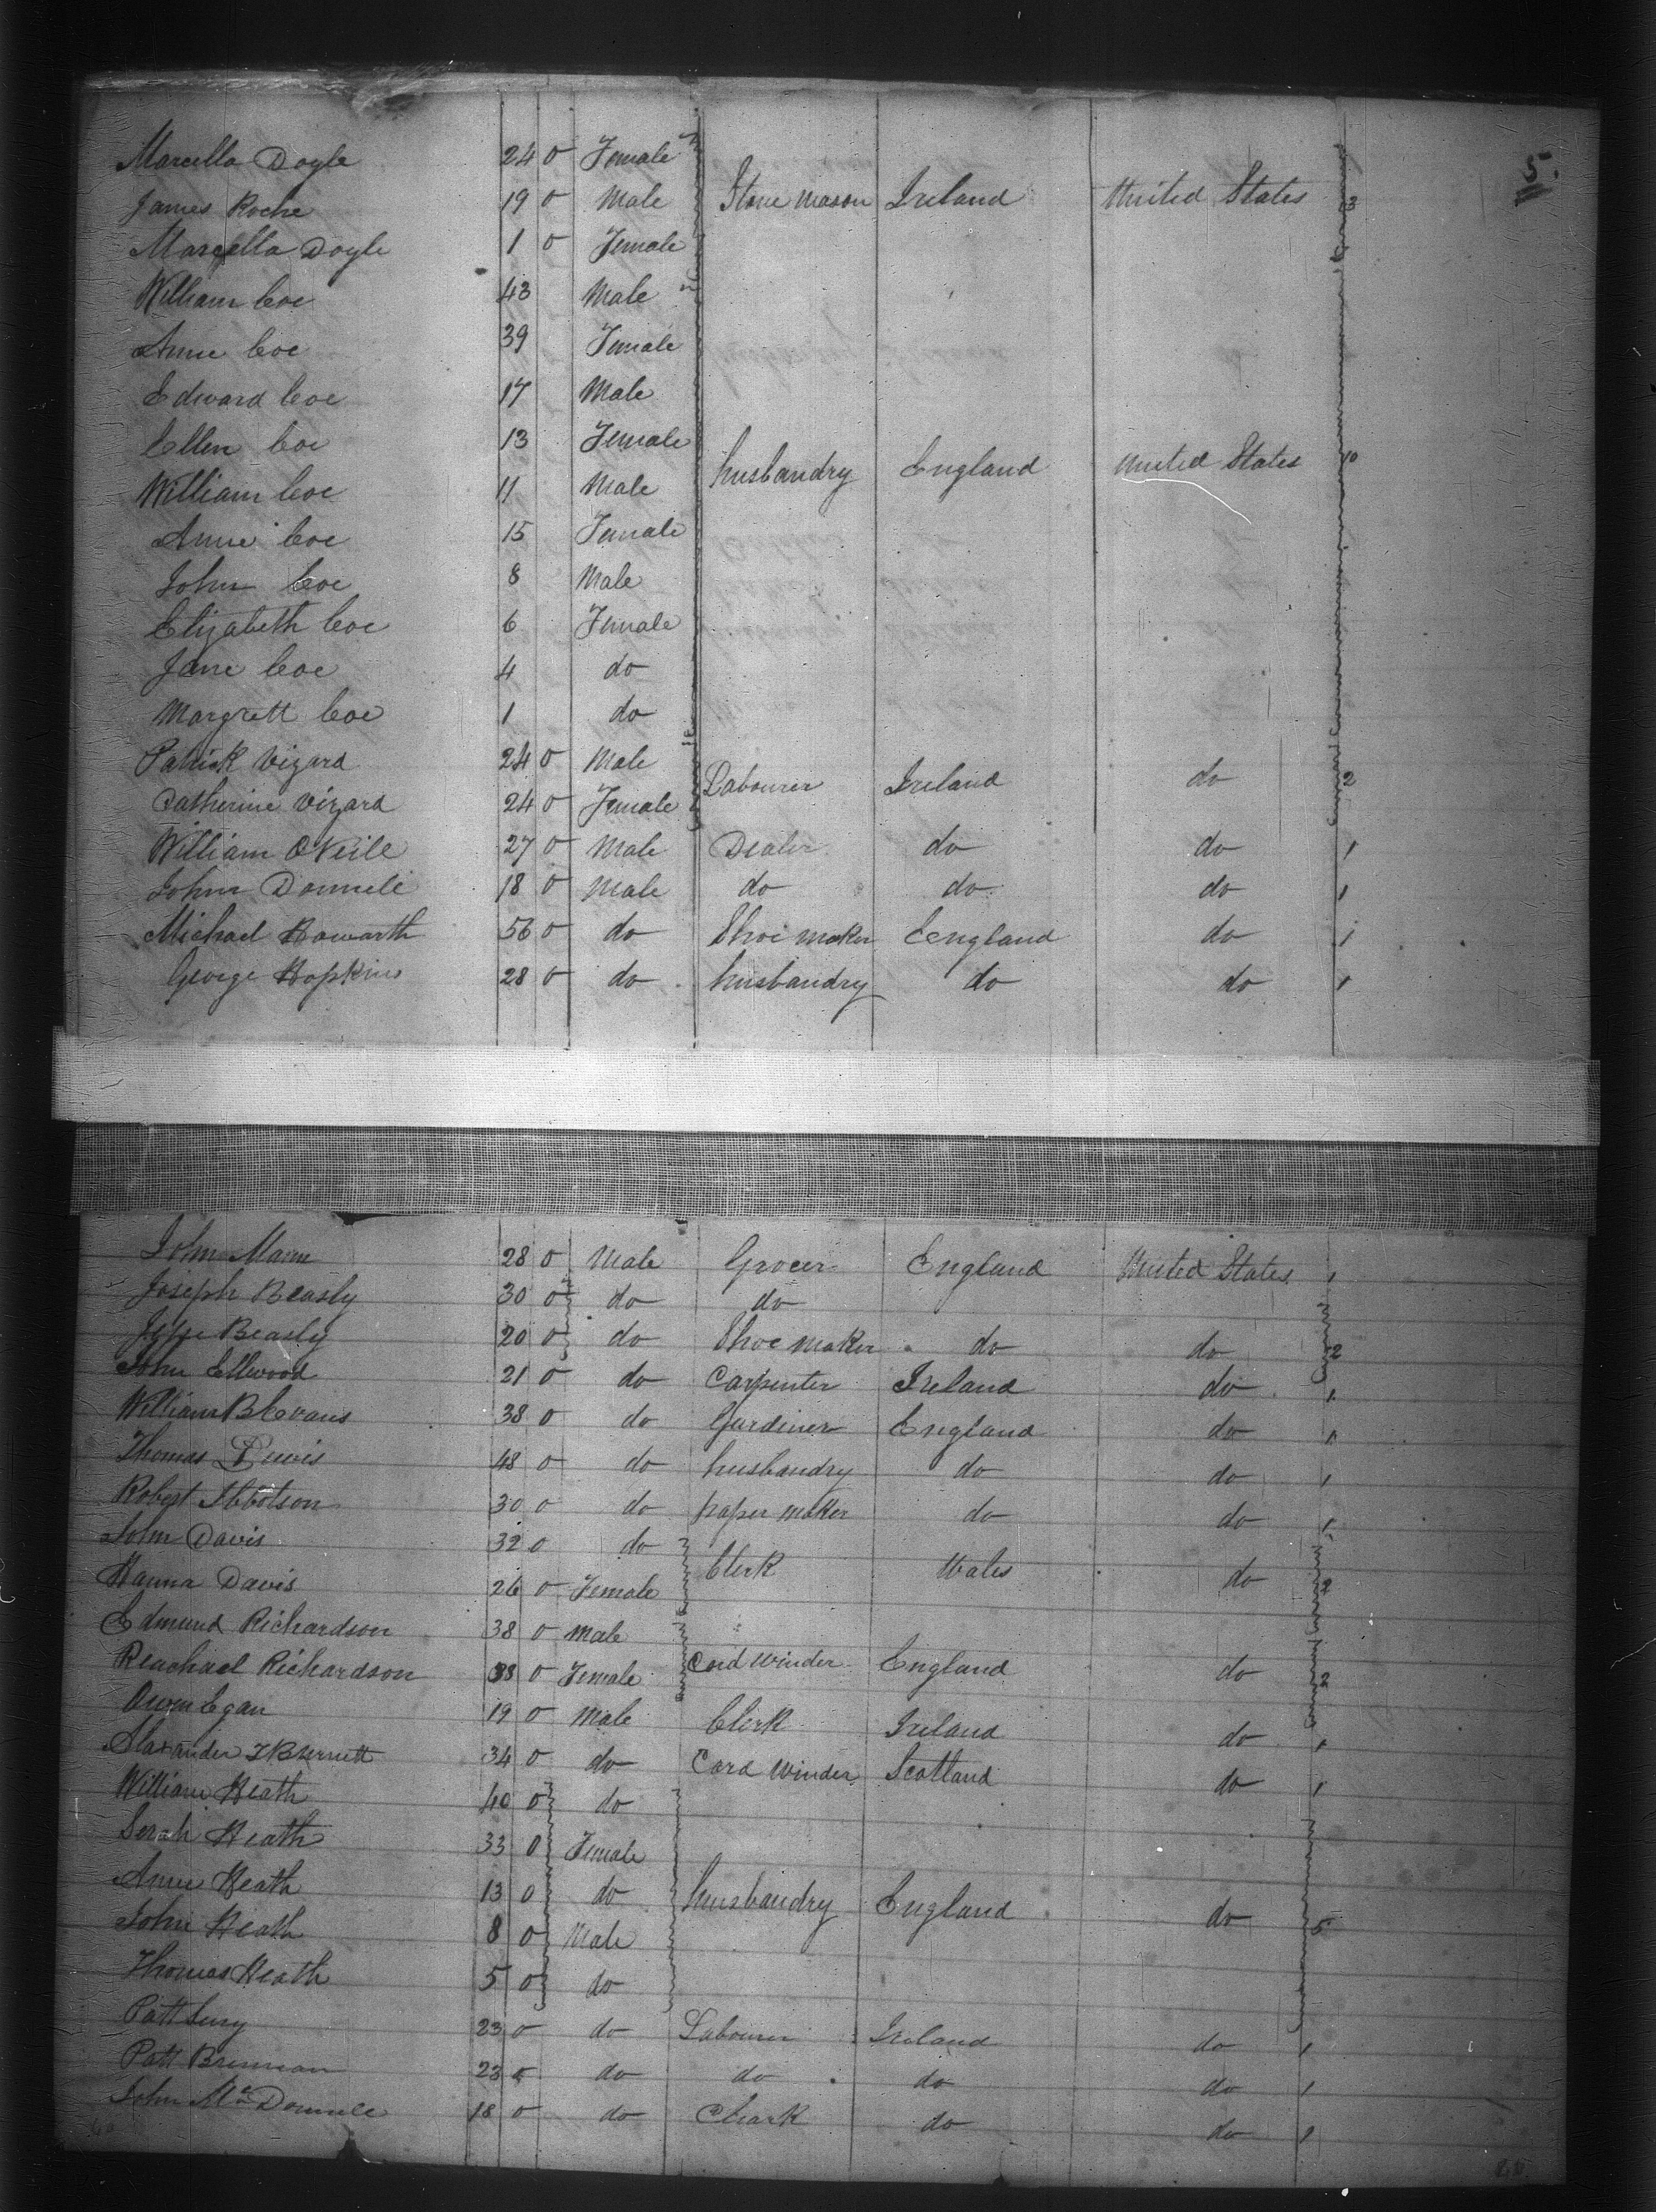 5.
Marcella Doyle 24 0 Female
James Roche 19 0 Male Stone Mason Ireland United States 3
Marcella Doyle 1 0 Female
William Coe 43 Male
Anne Coe 39 Female
Edward Coe 17 Male
Ellen Coe 13 Female
husbandry England United States 10
William Coe 11 Male
Anne Coe 15 Female
John Coe 8 Male
Elizabeth Coe 6 Female
Jane Coe 4 do
Margrett Coe 1 do
Patrick Vizard 24 0 Male
Labourer Ireland do 2
Catherine Vizard 24 0 Female
William ONeile 27 0 Male Dealer do do 1
John Donnele 18 0 Male do do do 1
Michael Howarth 56 0 do Shoe maker England do 1
George Hopkins 28 0 do husbandry do do 1
John Mann 28 0 Male Grocer England United States 1
Joseph Beasly 30 0 do do
Jesse Beasly 20 0 do Shoe maker do do 2
John Ellwood 21 0 do Carpenter Ireland do 1
William B Evans 38 0 do Gardiner England do 1
Thomas Lewis 48 0 do husbandry do do 1
Robert Ibbotson 30 0 do paper maker do do 1
John Davis 32 0 do
Clerk Wales do 2
Hanna Davis 26 0 Female
Edmund Richardson 38 0 Male
Reachael Richardson 38 0 Female Cord winder England do 2
Owen Egan 19 0 Male Clerk Ireland do 1
Alaxander 34 0 do Cord winder Scotland do 1
William Heath 40 0 do
Sarah Heath 33 0 Female
Anne Heath 13 0 do husbandry England do 5
John Heath 8 0 Male
Thomas Heath 5 0 do
Patt 23 0 do Labourer Ireland do 1
Patt Brennan 23 0 do do do do 1
John McDonnele 18 0 do Clark do do 1